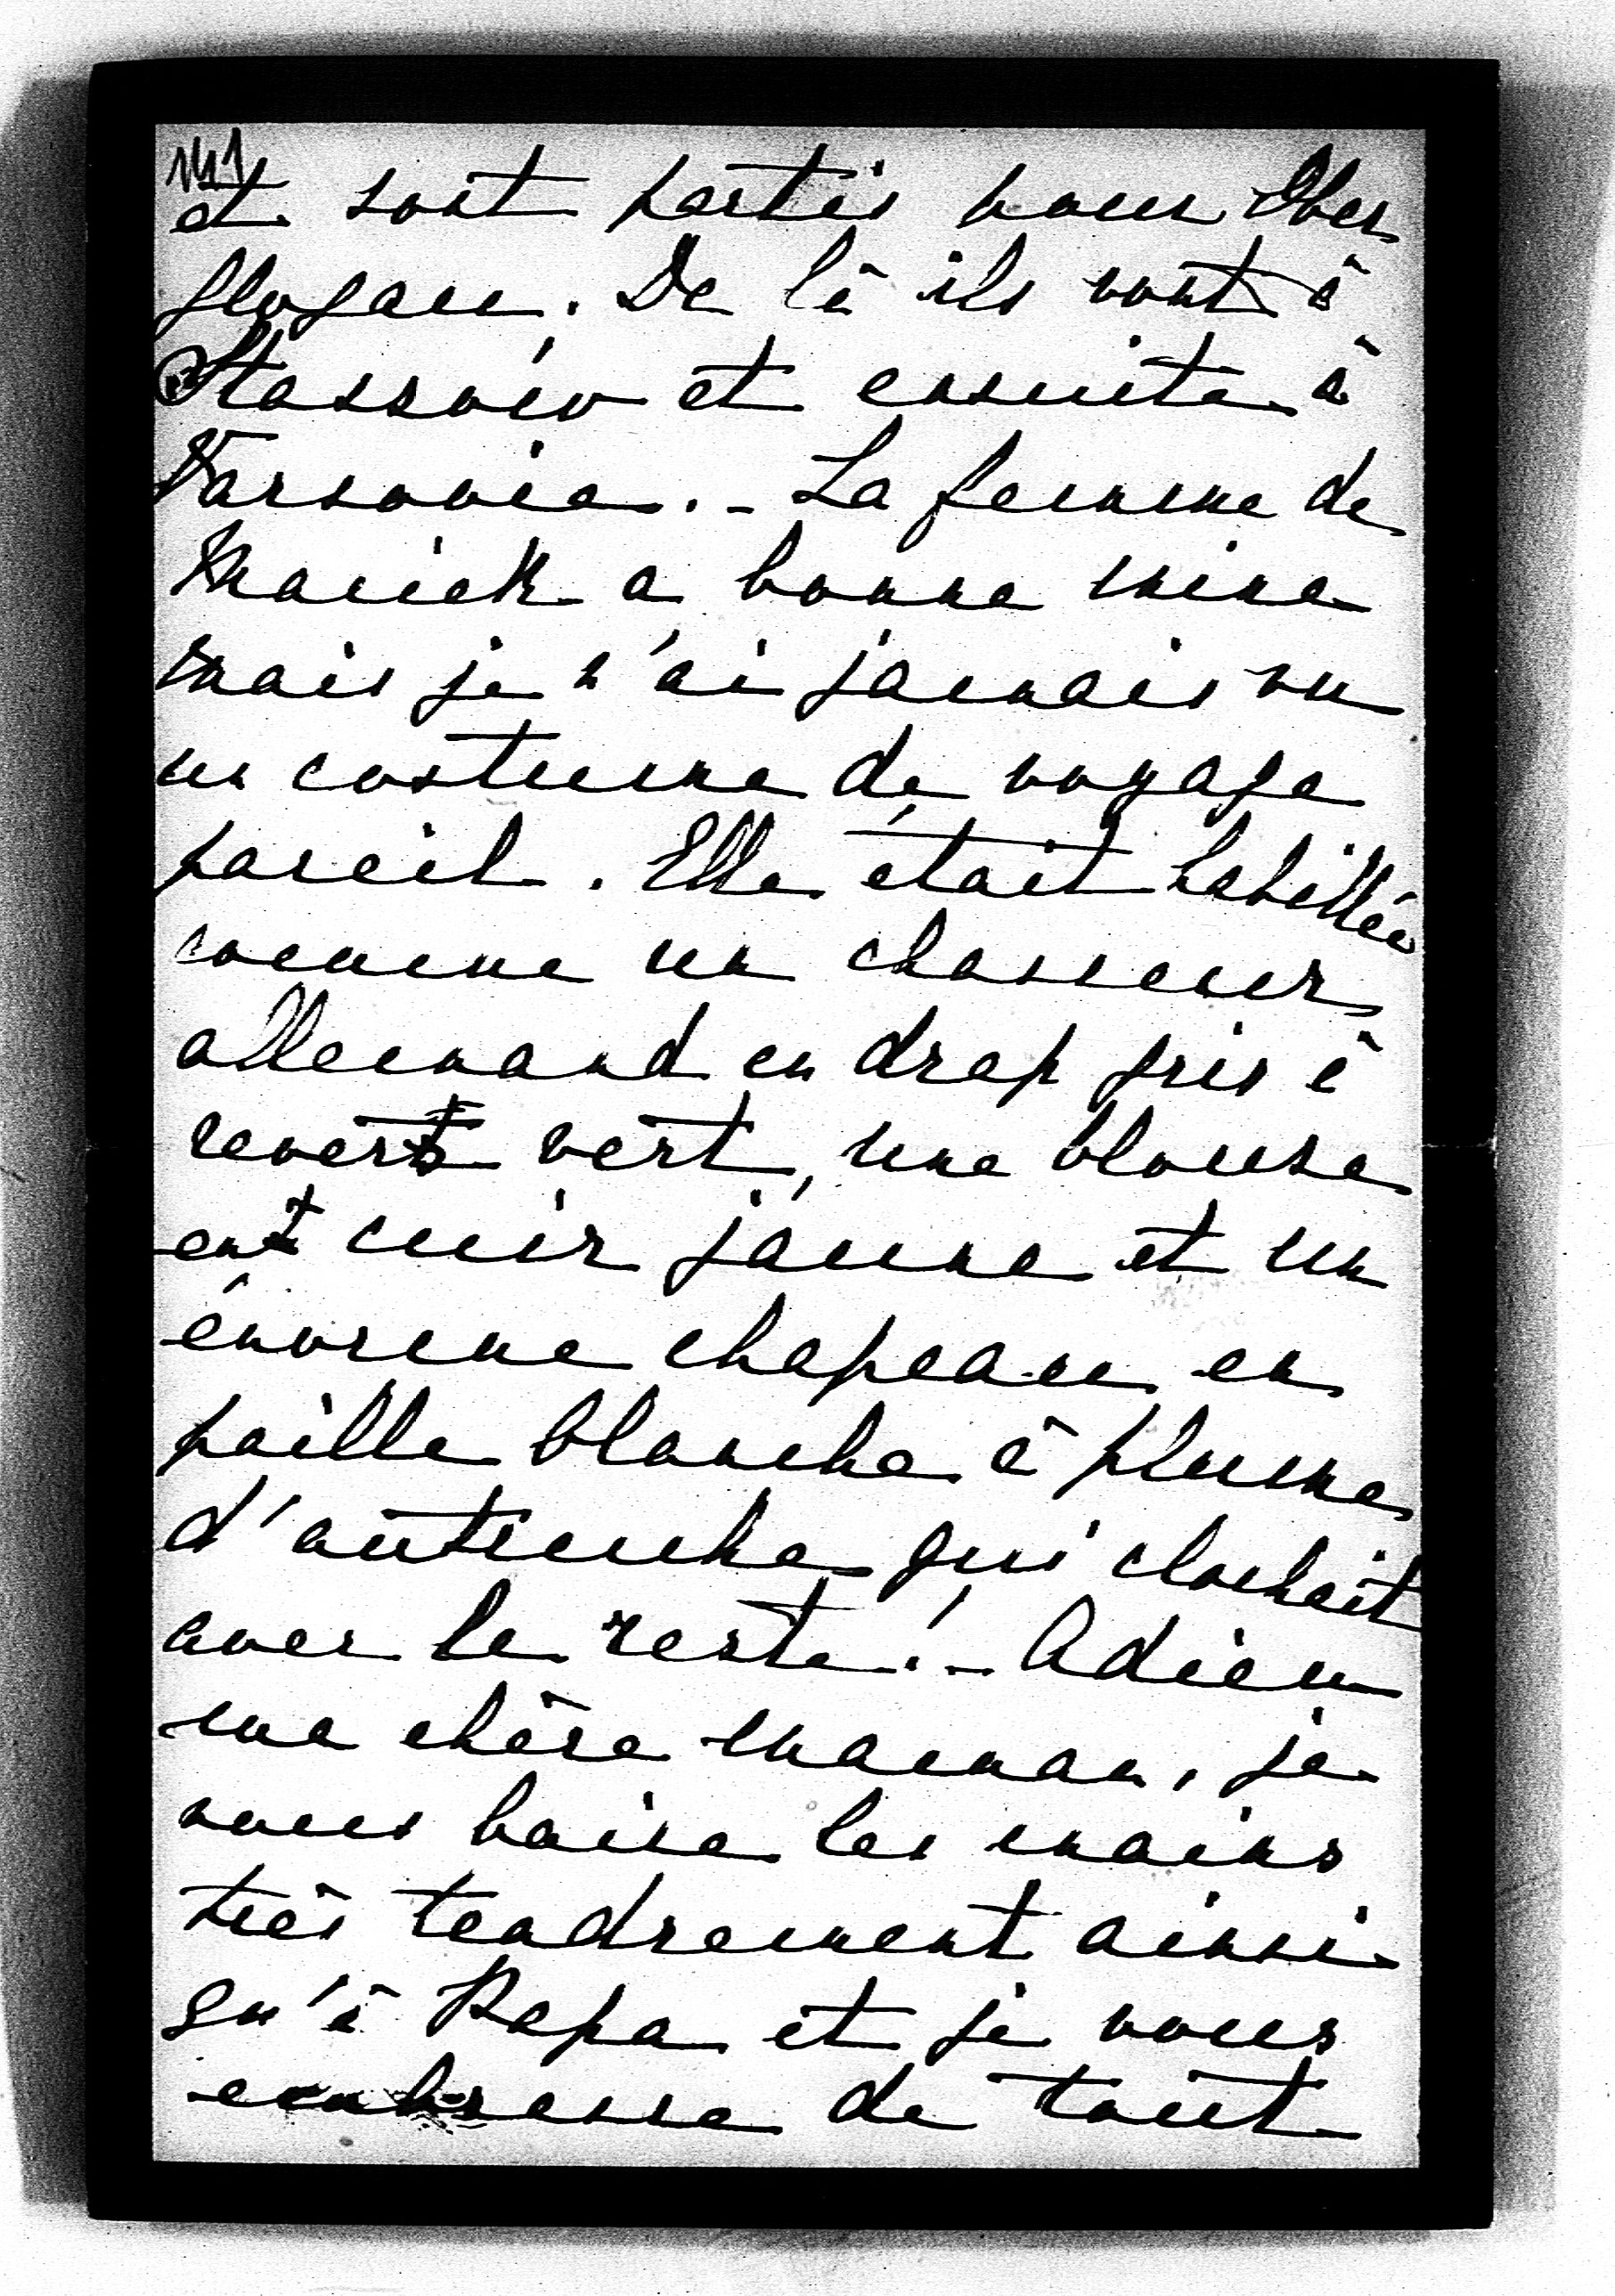 141
et sont partis pour Ober
glogau. De là ils vont à
Stassów et ensuite à
Varsovie. - La femme de
Maciek a bonne mine
mais je n'ai jamais vu
un costume de voyage
pareil. Elle était habillée
comme un chasseur
allemand en drap gris à
reverts vert, une blouse
ent cuir jaune et un
énorme chapeau en
paille blanche à plume
d'autruche qui clochait
avec le reste! - Adieu
ma chère Maman, je
vous baise les mains
très tendrement ainsi
qu'à Papa et je vous
embrasse de tout